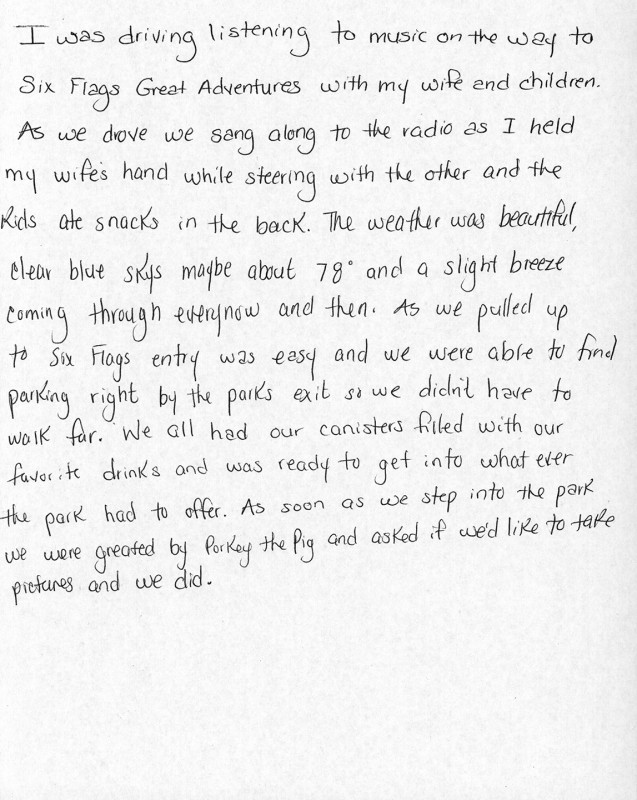 I was driving listening to music on the way to
Six Flags Great Adventures with my wife and children.
As we drove we sang along to the radio as I held
my wife's hand while steering with the other and the
Kids ate snacks in the back. The weather was beautiful,
clear blue skys maybe about 78° and a slight breeze
coming through everynow and then. As we pulled up
to Six Flags entry was easy and we were able to find
parking right by the parks exit so we didn't have to
walk far. We all had our canisters filled with our
favorite drinks and was ready to get into what ever
the park had to offer. As soon as we step into the park
we were greated by Porkey the Pig and asked if we'd like to take
pictures and we did.